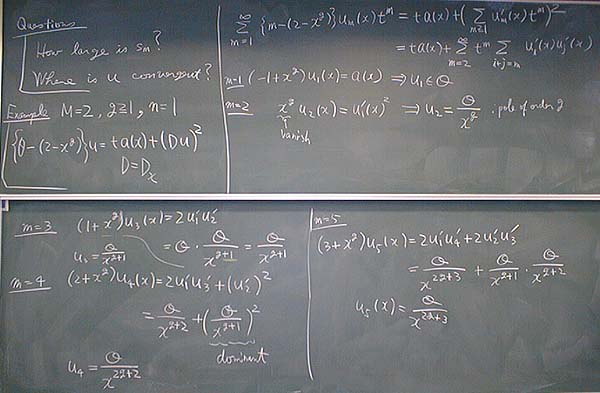 Questions
How large is sₘ?
Where is u convergent?
Example M=2, q≧1, n=1
{θ-(2-x^q)}u = ta(x)+(Du)²
D=Dₓ
∑_{m=1}^{∞} {m-(2-x^q)}uₘ(x)t^m = ta(x)+(∑_{m≧1} u'ₘ(x)t^m)²
= ta(x)+∑_{m=2}^{∞} t^m ∑_{i+j=m} u'ᵢ(x)u'ⱼ(x)
m=1 (-1+x^q)u₁(x)=a(x) ⇒ u₁∈O
m=2 x^q u₂(x)=u'₁(x)² ⇒ u₂=O/x^q : pole of order q
↑
vanish
m=3 (1+x^q)u₃(x)=2u'₁u'₂
u₃=O/x^{q+1} = O·O/x^{q+1}=O/x^{q+1}
m=4 (2+x^q)u₄(x)=2u'₁u'₃+(u'₂)²
=O/x^{q+2}+(O/x^{q+1})²
dominant
u₄=O/x^{2q+2}
m=5
(3+x^q)u₅(x)=2u'₁u'₄+2u'₂u'₃
=O/x^{2q+3}+O/x^{q+1}·O/x^{q+2}
u₅(x)=O/x^{2q+3}